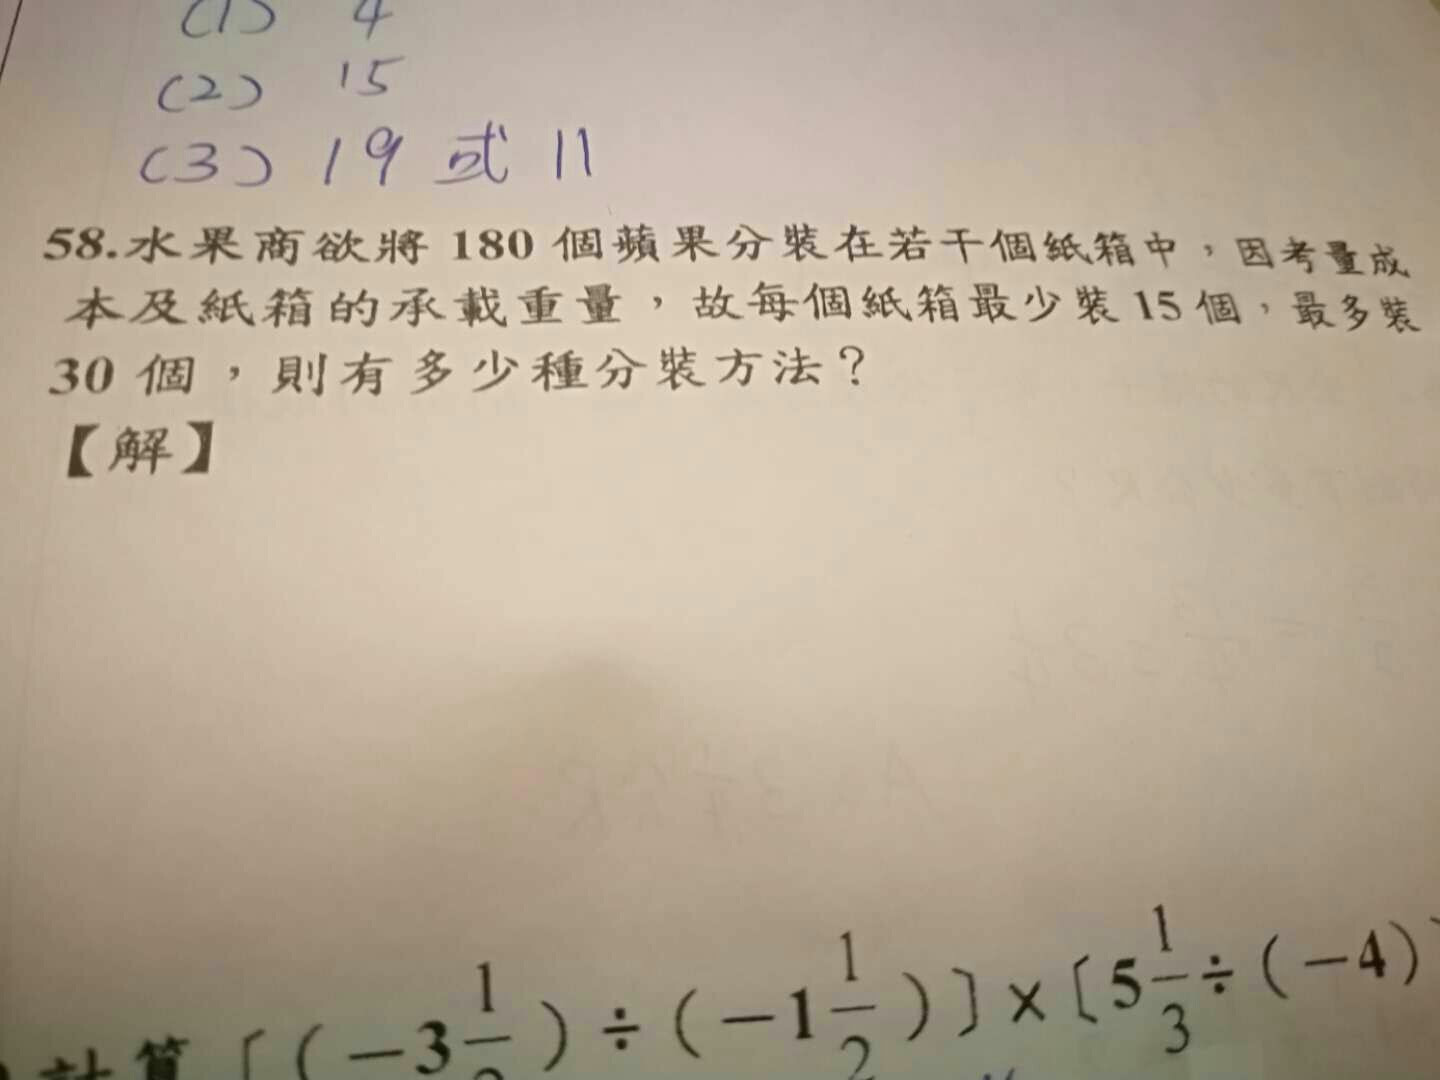 (1) 4
(2) 15
(3) 19 或 11
58.水果商欲將 180 個蘋果分裝在若干個紙箱中，因考量成
本及紙箱的承載重量，故每個紙箱最少裝 15 個，最多裝
30 個，則有多少種分裝方法？
【解】
計算〔(－3 1/2)÷(－1 1/2)〕×〔5 1/3÷(－4)